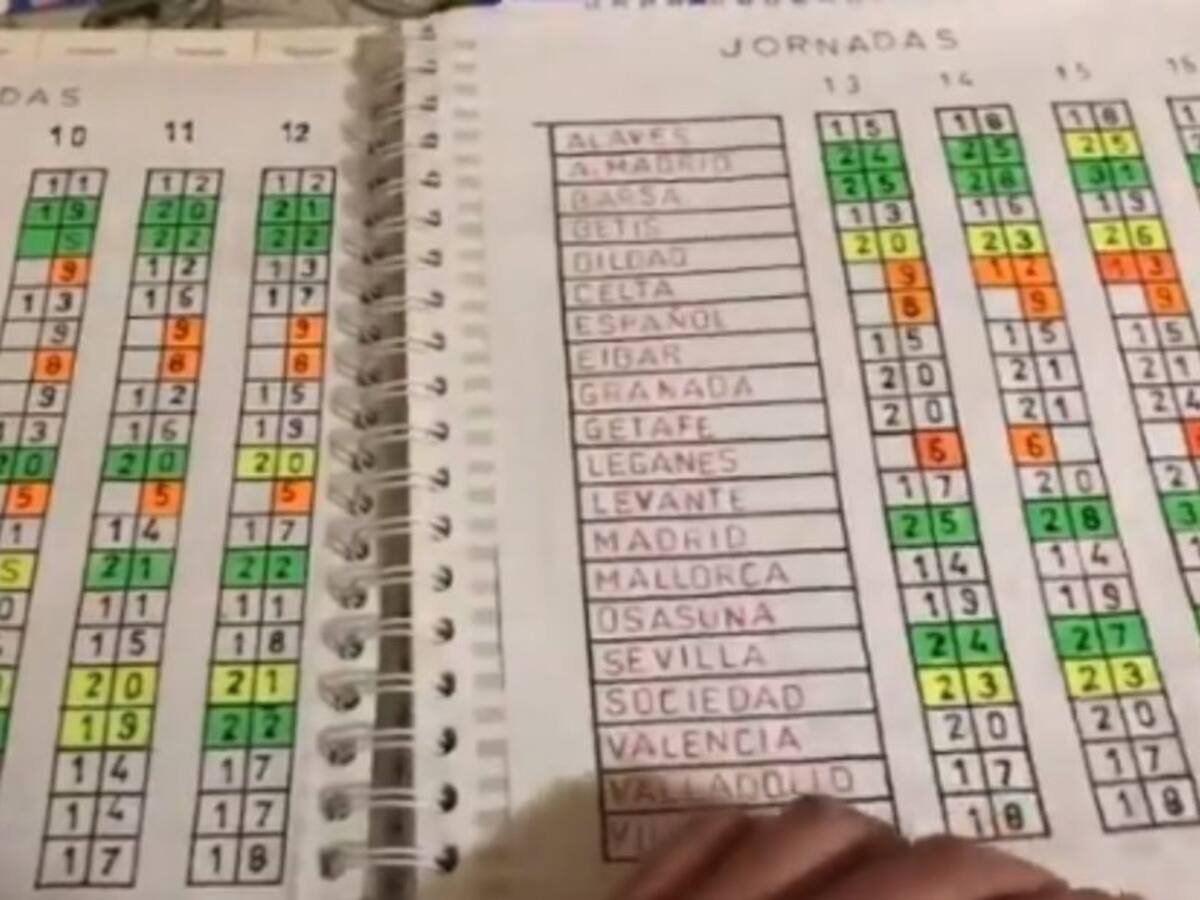 DAS
10 11 12
11 12 12
19 20 21
5 22 22
9 12 13
13 16 17
9 9 9
8 8 8
9 12 15
13 16 19
20 20 20
5 5 5
1 14 17
5 21 22
0 11 11
15 18
20 21
19 22
14 17
14 17
17 18
JORNADAS
13 14 15 16
ALAVES 15 18 18
A. MADRID 24 25 25
BARSA 25 28 31
BETIS 13 16 19
BILBAO 20 23 26
CELTA 9 12 13
ESPAÑOL 8 9 9
EIBAR 15 15 15
GRANADA 20 21 21
GETAFE 20 21 24
LEGANES 6 6
LEVANTE 17 20 2
MADRID 25 28 3
MALLORCA 14 14 1
OSASUNA 19 19
SEVILLA 24 27
SOCIEDAD 23 23
VALENCIA 20 20
VALLADOLID 17 17
VIL 18 18